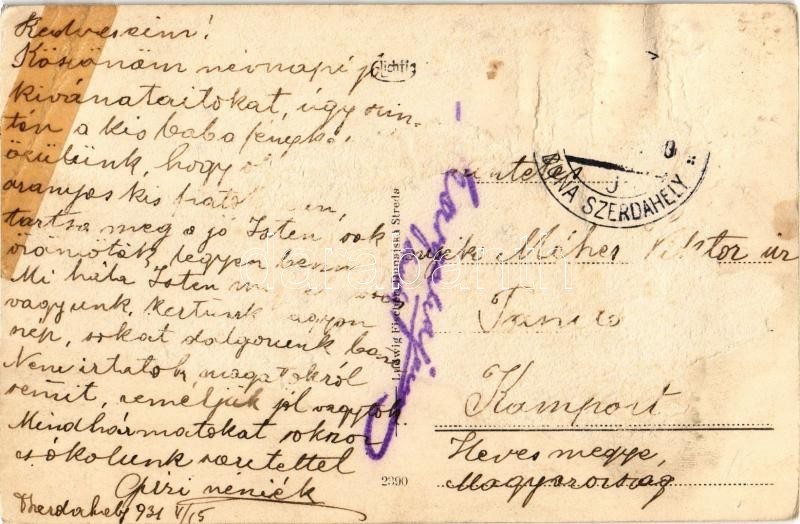 Kedveseim!
Köszönöm névnapi jó
kivánataitokat, úgy szin-
tén a kis baba fényké
örülünk, hogy
aranyos kis
tartsa meg a jó Isten, sok
örömötök legyen benn
Mi hála Isten
vagyunk. Kertünk agyon
nép, sokat dolgozunk ban
Nem irtatok magatokról
semmit, reméljük jól vagytok.
Mindhármatokat sokszor
csókolunk szeretettel
Gizi neniék
Szerdahely 931 VI/15
Lichtig
Ludwig Fischer, Dunajská Streda
2390
DUNA SZERDAHELY
Méhes Viktor úr
Tanító
Kompolt
Heves megye,
Magyarország